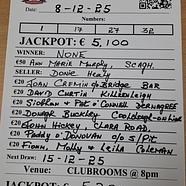 8-12-25
Numbers:
1 17 27 32
JACKPOT: € 5,100
WINNER:
NONE
€50 Ann Marie Murphy, SCAGH.
SELLER: Donie Healy
€20 Joan Cremin c/o Bridge Bar
€20 David Curtin Killeenleigh
€20 Siobhan & Pat O'Connell Dernagree
€20 Donagh Buckley
€20 John Hickey Clara Road
€20 Paddy O'Donovan c/o S/Pk
€20 Fionn, Molly & Leiha Coleman
Next Draw: 15-12-25
Venue: CLUBROOMS @ 8pm